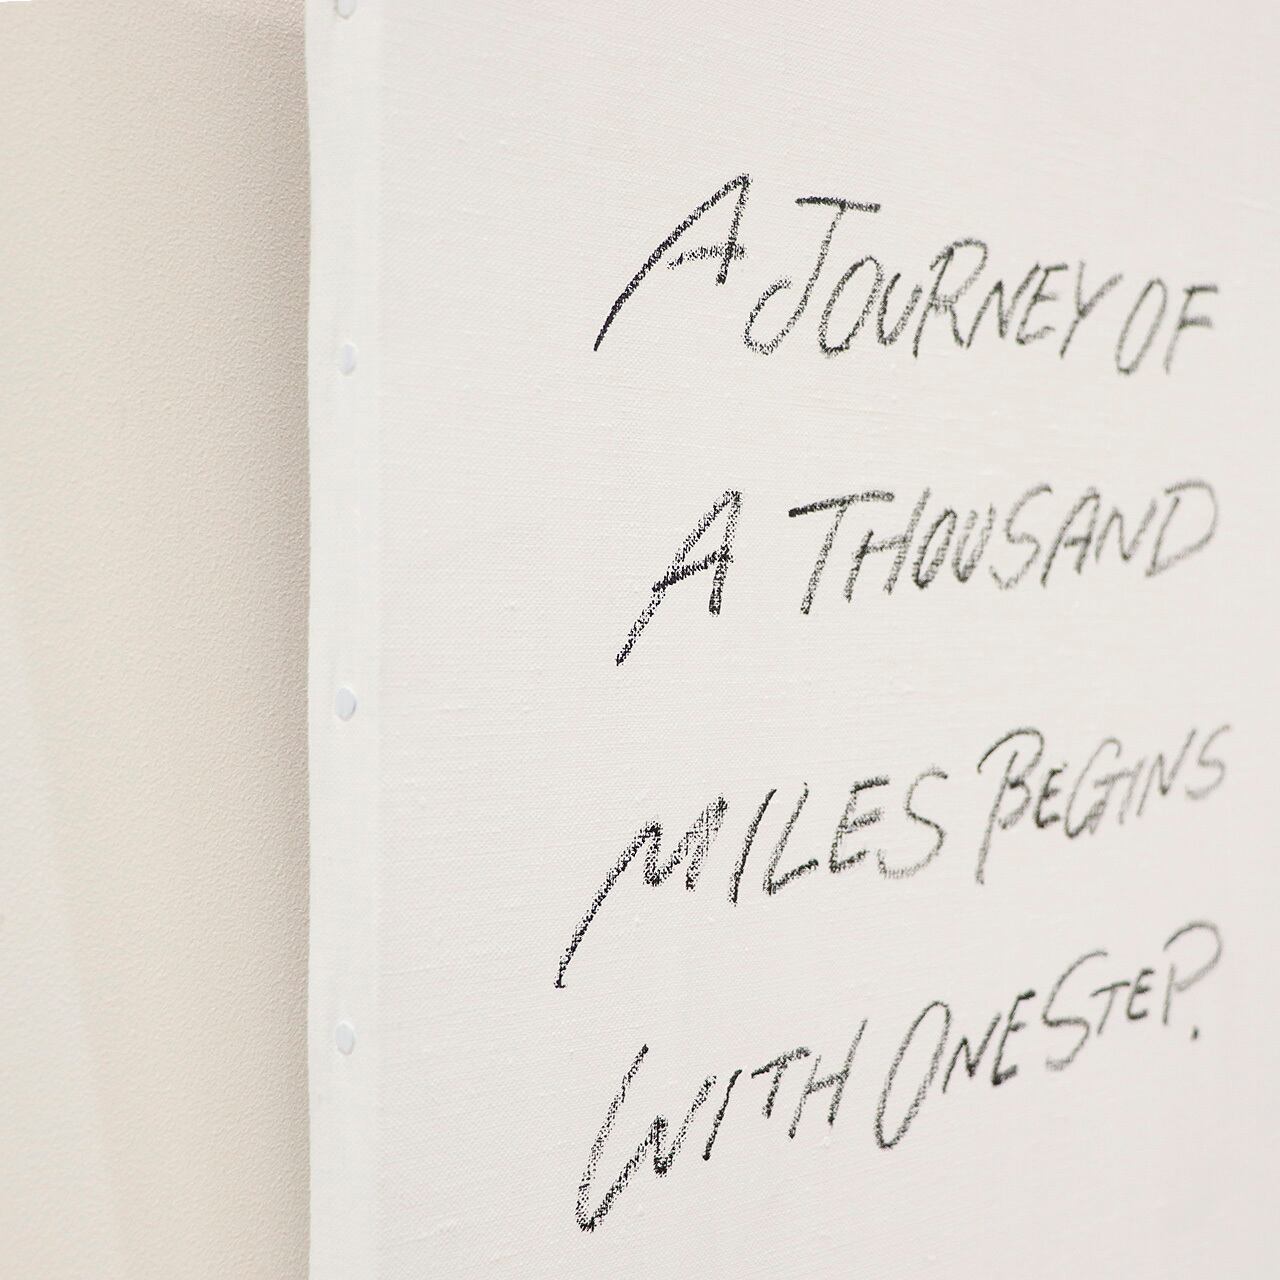 A JOURNEY OF
A THOUSAND
MILES BEGINS
WITH ONE STEP.